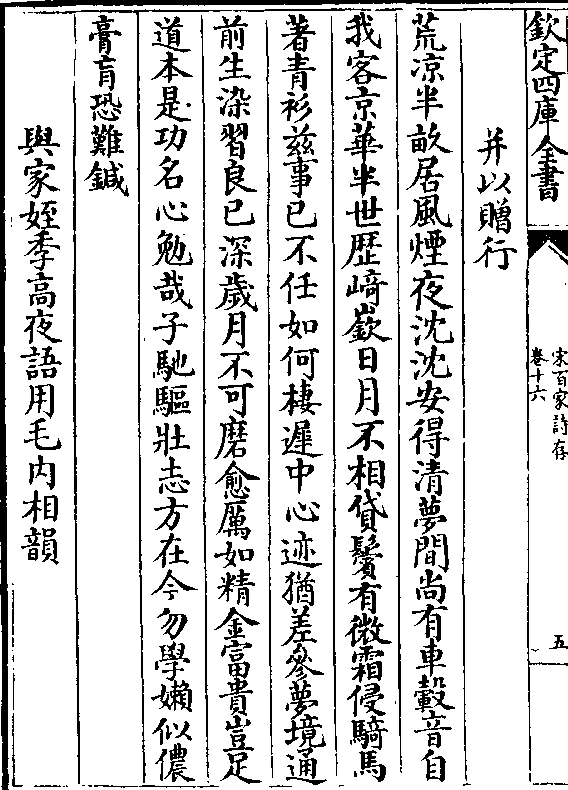 欽定四庫全書
宋百家詩存
卷十六
五
并以贈行
荒凉半畝居風煙夜沈沈安得清夢間尚有車轂音自
我客京華半世歴﨑嶔日月不相貸鬢有微霜侵騎馬
著青衫兹事已不任如何棲遲中心迹猶差參夢境通
前生染習良已深歲月不可磨愈厲如精金富貴豈足
道本是功名心勉哉子馳驅壯志方在今勿學嬾似儂
膏肓恐難鍼
與家姪季高夜語用毛内相韻